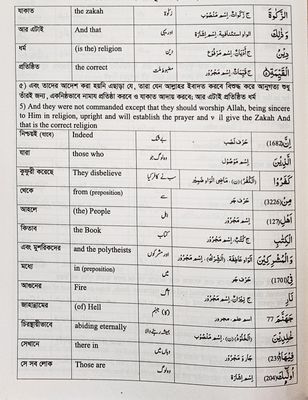 যাকাত the zakah زکوٰۃ ج زَكَوَاتٌ، اِسْم مَنْصُوْب الزَّكٰوةَ
আর এটাই And that اور یہی الواو استئنافية، اِسْم اِشَارَة وَذٰلِكَ
ধর্ম (is the) religion دین ج اَدْيَانٌ، اِسْم مَرْفُوْع دِيْنُ
প্রতিষ্ঠিত the correct اِسْم مَجْرُوْر الْقَيِّمَةِ
৫) এবং তাদের আদেশ করা হয়নি এছাড়া যে, তারা যেন আল্লাহর ইবাদত করবে বিশুদ্ধ করে আনুগত্য শুধু
তাঁরই জন্য, একনিষ্ঠভাবে নামায প্রতিষ্ঠা করবে ও যাকাত আদায় করবে; আর এটাই প্রতিষ্ঠিত ধর্ম
5) And they were not commanded except that they should worship Allah, being sincere
to Him in religion, upright and will establish the prayer and will give the Zakah And
that is the correct religion
নিশ্চয়ই (যাবে) Indeed بے شک حَرْف نَصْب اِنَّ (1682)
যারা those who وہ لوگ جو اِسْم مَوْصُوْل الَّذِيْنَ
কুফুরী করেছে They disbelieve كَفَرُوْا
থেকে from (preposition) سے حَرْف جَر مِنْ (3226)
আহলে (the) People اہل اِسْم مَجْرُوْر اَهْلِ (127)
কিতাব the Book کتاب ج كُتُبٌ، اِسْم مَجْرُوْر الْكِتٰبِ
এবং মুশরিকদের and the polytheists اور مشرکوں اِسْم مَجْرُوْر وَالْمُشْرِكِيْنَ
মধ্যে in (preposition) میں حَرْف جَر فِيْ (1701)
আগুনের Fire آگ ج نِيْرَانٌ، اِسْم مَجْرُوْر نَارِ
জাহান্নামের (of) Hell جہنم اسم علم، مجرور جَهَنَّمَ 77
চিরস্থায়ীভাবে abiding eternally ہمیشہ رہنے والا اِسْم مَنْصُوْب خٰلِدِيْنَ
সেখানে in them وہاں میں جار و مَجْرُوْر فِيْهَا (239)
সে সব লোক Those are وہ لوگ اِسْم اِشَارَة اُولٰٓئِكَ (204)